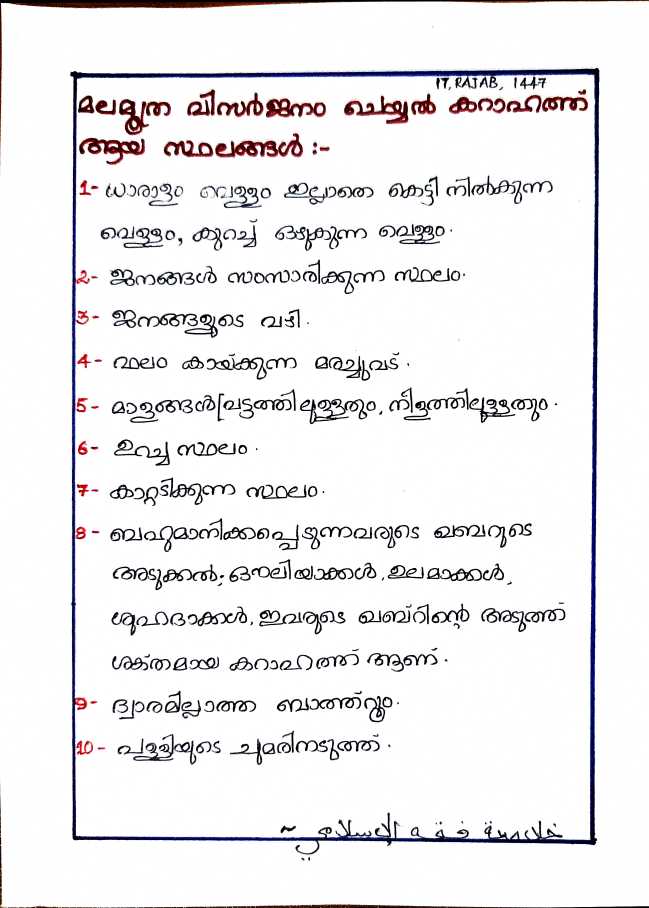 17, RAJAB, 1447
മലമൂത്ര വിസർജനം ചെയ്യൽ കറാഹത്ത്
ആയ സ്ഥലങ്ങൾ :-
1- ധാരാളം വെള്ളം ഇല്ലാതെ കെട്ടി നിൽക്കുന്ന
വെള്ളം, കുറച്ച് ഒഴുകുന്ന വെള്ളം.
2- ജനങ്ങൾ സംസാരിക്കുന്ന സ്ഥലം.
3- ജനങ്ങളുടെ വഴി.
4- ഫലം കായ്ക്കുന്ന മരച്ചുവട്.
5- മാളങ്ങൾ[വട്ടത്തിലുള്ളതും, നീളത്തിലുള്ളതും.
6- ഉറച്ച സ്ഥലം.
7- കാറ്റടിക്കുന്ന സ്ഥലം.
8- ബഹുമാനിക്കപ്പെടുന്നവരുടെ ഖബറുടെ
അടുക്കൽ; ഔലിയാക്കൾ, ഉലമാക്കൾ,
ശുഹദാക്കൾ, ഇവരുടെ ഖബ്റിന്റെ അടുത്ത്
ശക്തമായ കറാഹത്ത് ആണ്.
9- ദ്വാരമില്ലാത്ത ബാത്ത്റൂം.
10- പള്ളിയുടെ ചുമരിനടുത്ത്.